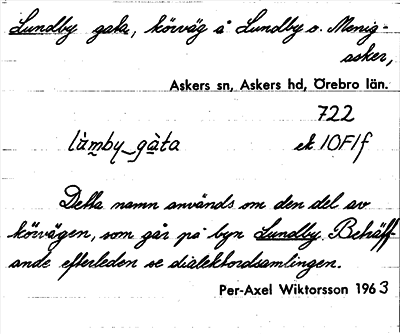 Lundby gata, körväg å Lundby o. Menig-
asker,
Askers sn, Askers hd, Örebro län.
722
lùmby_gàta ek 10F1f
Detta namn används om den del av
körvägen, som går på byn Lundby. Beträff-
ande efterleden se dialektordsamlingen.
Per-Axel Wiktorsson 1963